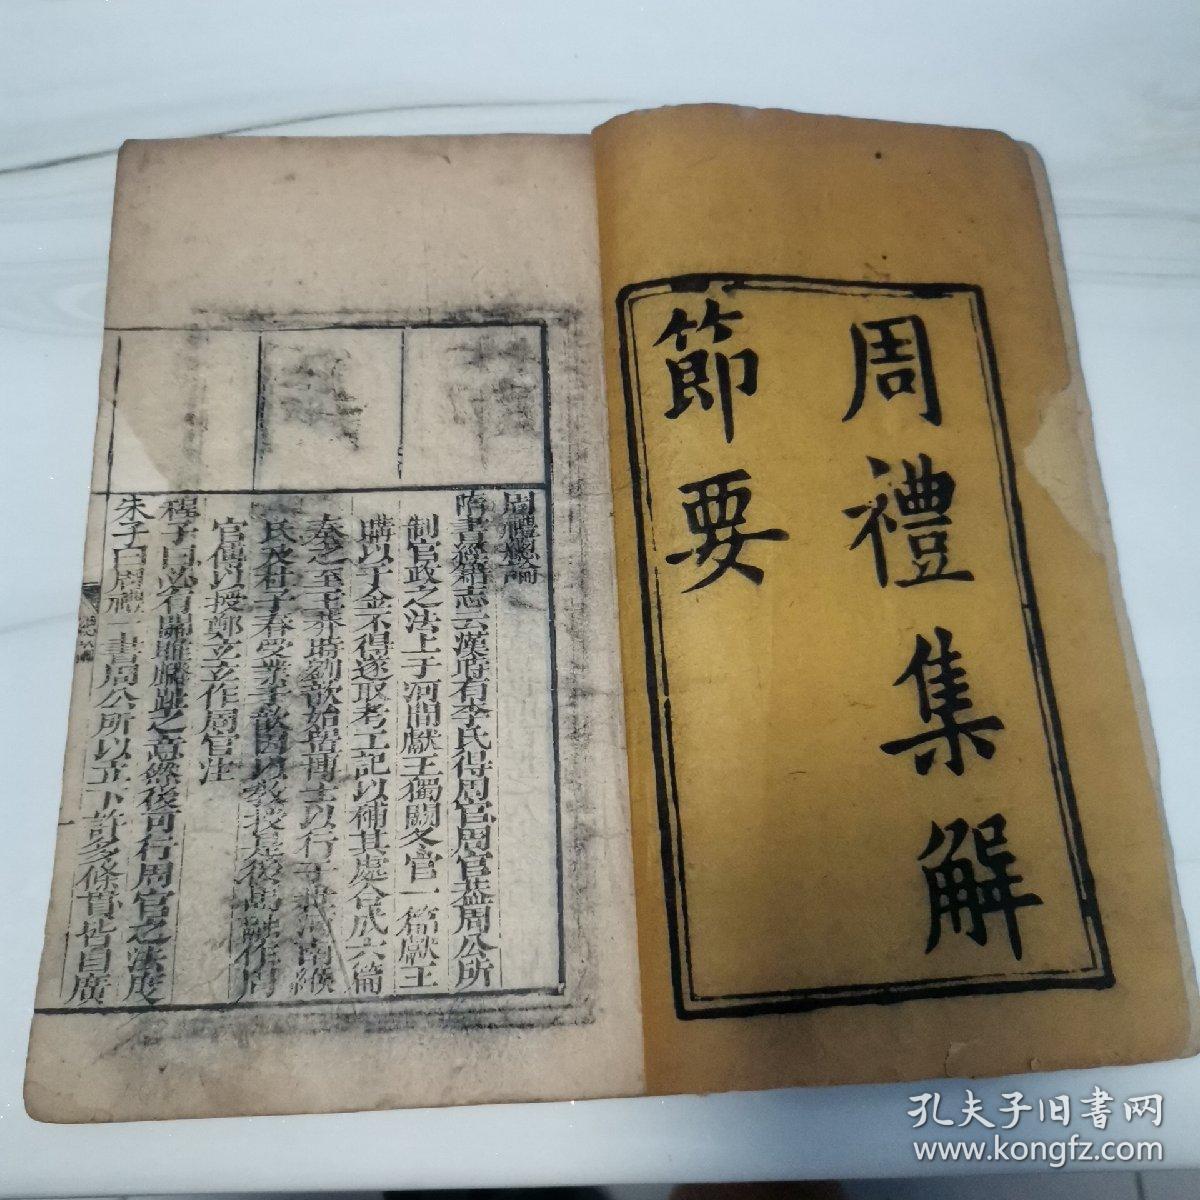 周禮集解
節要
周禮總論
隋書經籍志云漢時有李氏得周官周官葢周公所
制官政之法上于河間獻王獨闕冬官一篇獻王
購以千金不得遂取考工記以補其處合成六篇
奏之至王莽時劉歆始置博士以行于世河南緱
氏及杜子春受業于歆因以敎授是後馬融作周
官傳以授鄭玄玄作周官注
程子曰必有關雎麟趾之意然後可行周官之法度
朱子曰周禮一書周公所以立下許多條貫皆自廣
孔夫子旧书网
www.kongfz.com